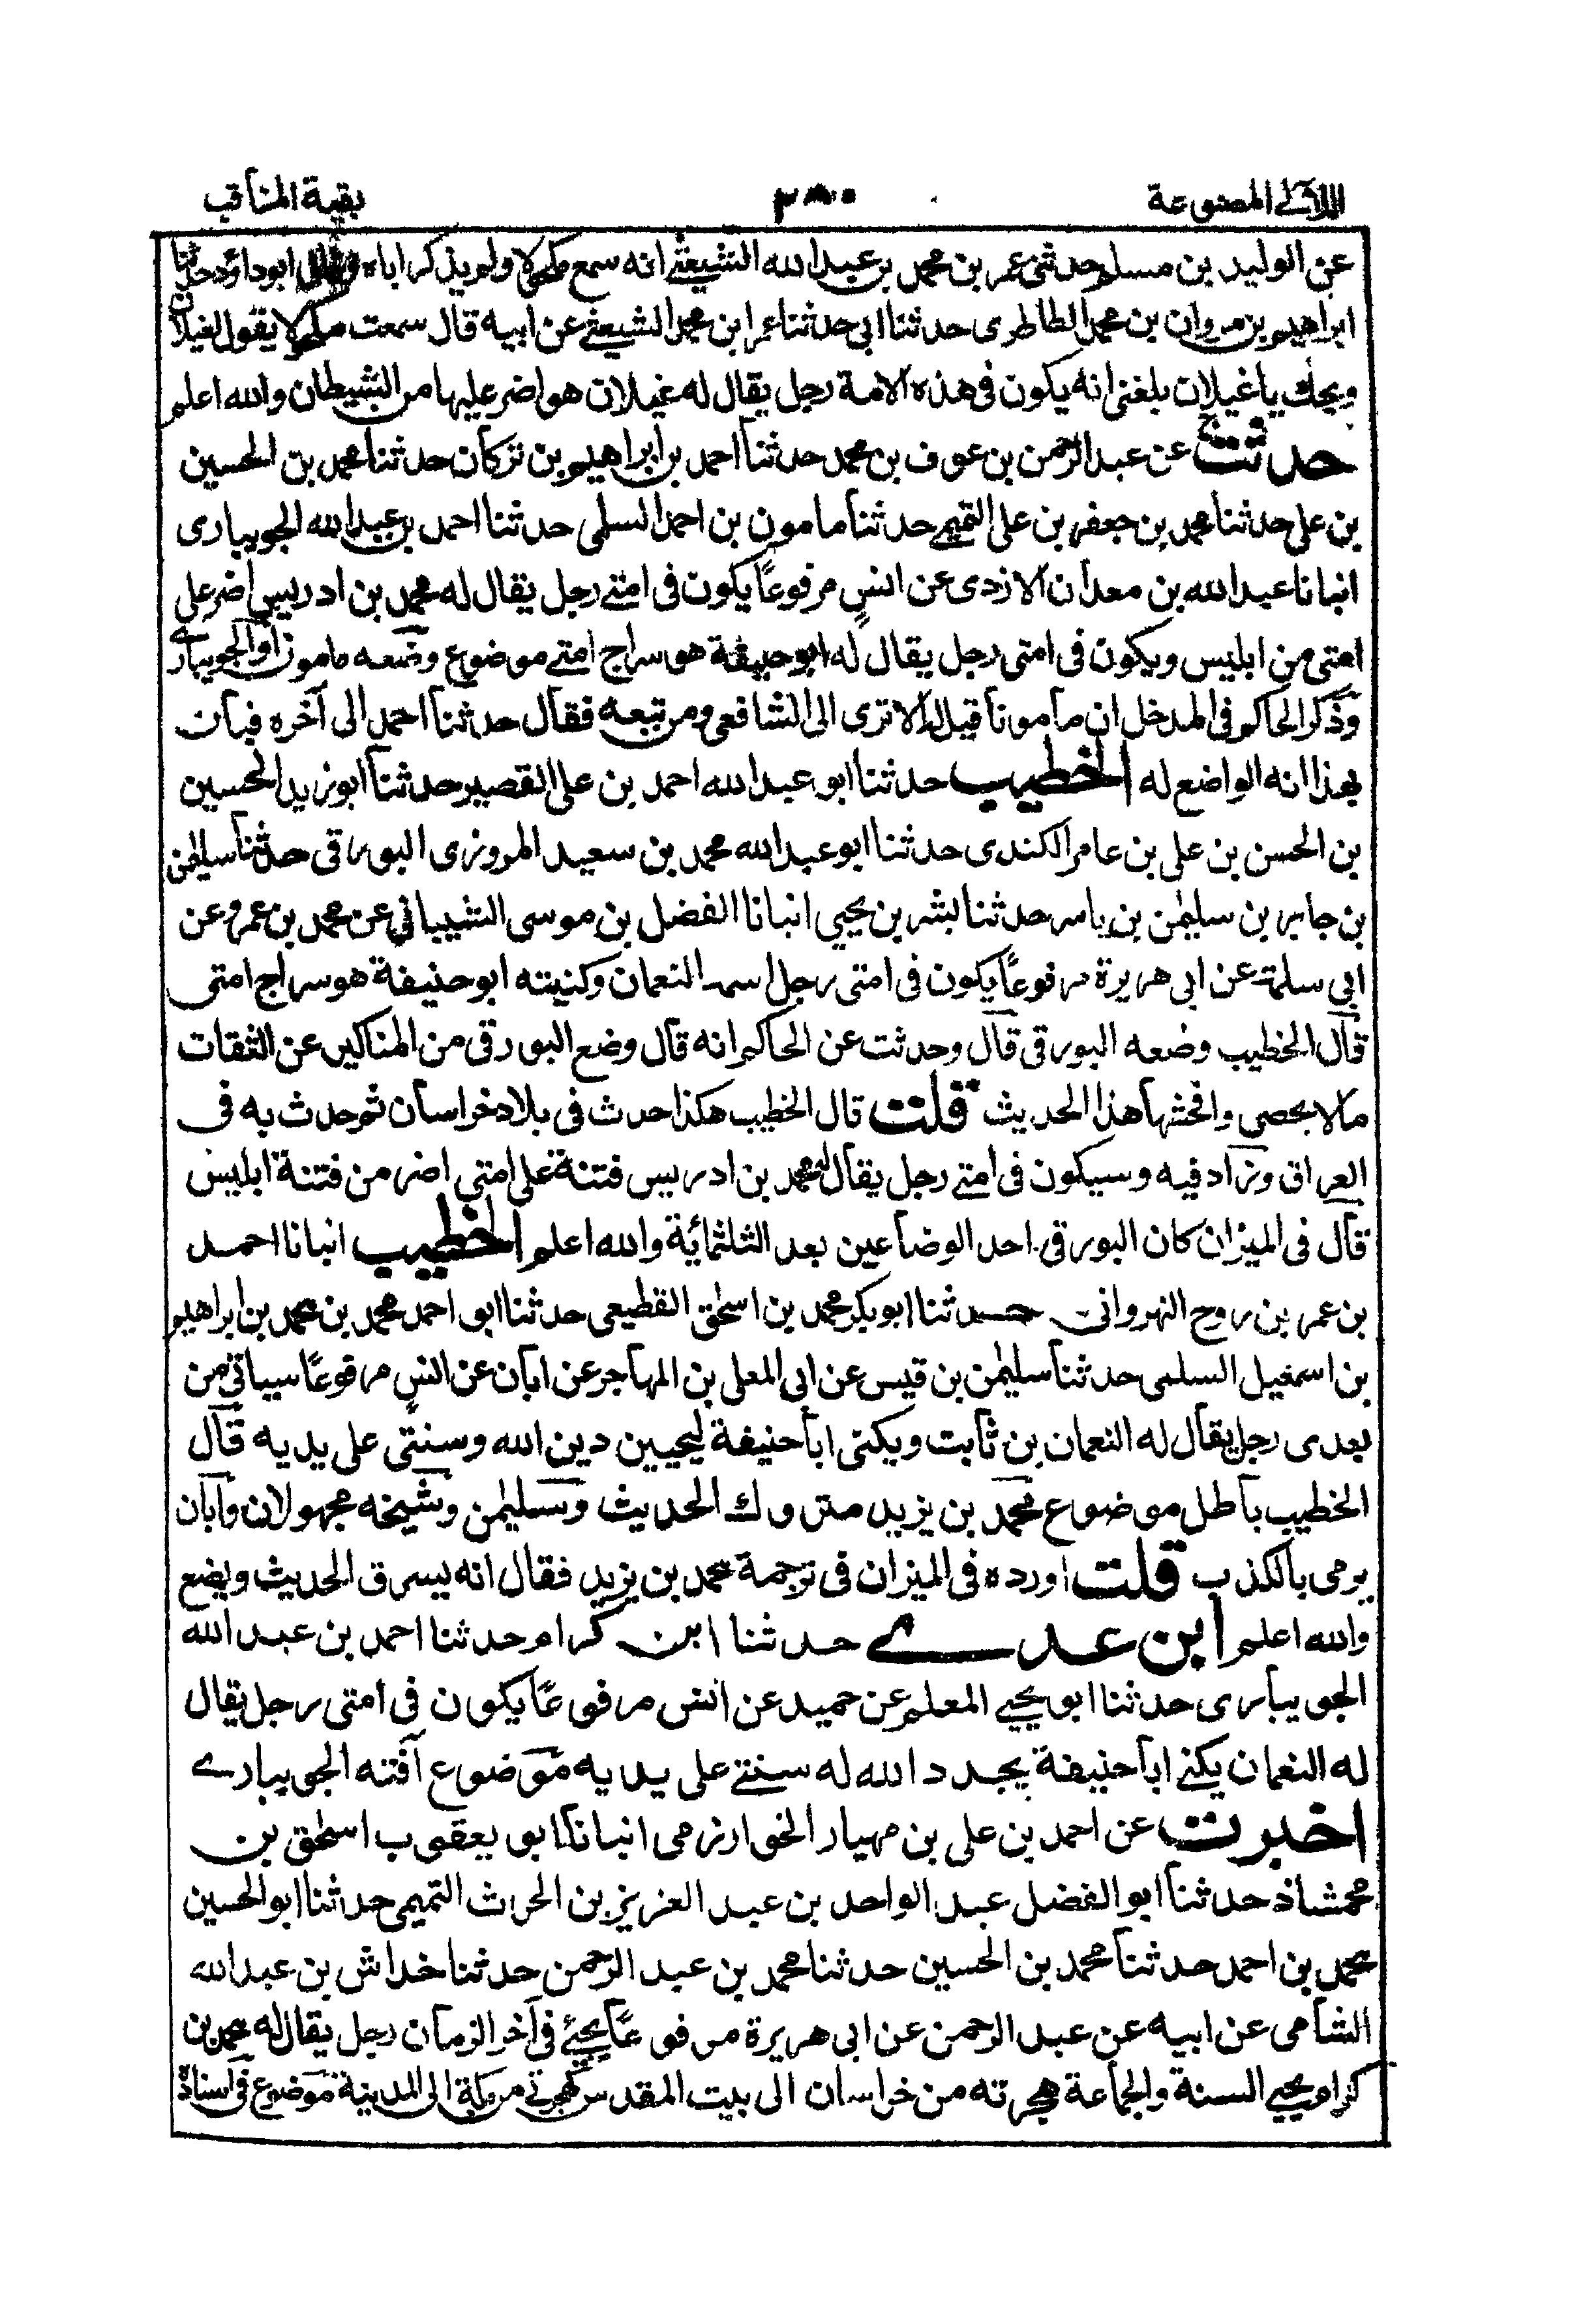 اللآلى المصنوعة ٣٨٠ بقية المناقب
عن الوليد بن مسلم حدثنى عمر بن محمد بن عبدالله الشعيثي انه سمع مكحولا ولم يذكر اباه وقال ابوداؤد حدثنا
ابراهيم بن مروان بن محمد الطاطرى حدثنا ابى حدثنا عمر ابن محمد الشعيثي عن ابيه قال سمعت مكحولا يقول لغيلان
ويحك ياغيلان بلغنى انه يكون فى هذه الامة رجل يقال له غيلان هو اضر عليها من الشيطان والله اعلم
حدثت عن عبد الرحمن بن عوف بن محمد حدثنا احمد بن ابراهيم بن تركان حدثنا محمد بن الحسين
بن على حدثنا محمد بن جعفر بن على التميمي حدثنا مامون بن احمد السلمى حدثنا احمد بن عبد الله الجويبارى
انبانا عبدالله بن معدان الازدى عن انس مرفوعًا يكون فى امتي رجل يقال له محمد بن ادريس اضر على
امتى من ابليس ويكون فى امتى رجل يقال له ابو حنيفة هو سراج امتي موضوع وضعه مامون او الجويبارے
وذكر الحاكم فى المدخل ان مامونا قيل له الا ترى الى الشافعى ومن تبعه فقال حدثنا احمد الى آخره فبان
بهذا انه الواضع له الخطيب حدثنا ابو عبدالله احمد بن على القصير حدثنا ابو زيد الحسين
بن الحسن بن على بن عامر الكندى حدثنا ابو عبدالله محمد بن سعيد المروزى البورقى حدثنا سليمٰن
بن جابر بن سليمٰن بن ياسر حدثنا بشر بن يحيي انبانا الفضل بن موسى الشيبانى عن محمد بن عمرو عن
ابى سلمة عن ابى هريرة مرفوعًا يكون فى امتى رجل اسمه النعمان وكنيته ابو حنيفة هو سراج امتى
قال الخطيب وضعه البورقى قال وحدثت عن الحاكم انه قال وضع البورقى من المناكير عن الثقات
مالا يحصى وافحشها هذا الحديث قلت قال الخطيب هكذا حدث فى بلاد خراسان ثم حدث به فى
العراق وزاد فيه وسيكون فى امتے رجل يقال له محمد بن ادريس فتنة على امتي اضر من فتنة ابليس
قال فى الميزان كان البورقى احد الوضاعين بعد الثلثمائة والله اعلم الخطيب انبانا احمد
بن عمر بن روح النهروانى حدثنا ابوبكر محمد بن اسحٰق القطيعى حدثنا ابو احمد محمد بن محمد بن ابراهيم
بن اسمعيل السلمى حدثنا سليمٰن بن قيس عن ابى المعلى بن المهاجر عن ابان عن انس مرفوعًا سياتى من
بعدى رجل يقال له النعمان بن ثابت ويكنى ابا حنيفة ليحيين دين الله وسنتى على يديه قال
الخطيب باطل موضوع محمد بن يزيد متروك الحديث وسليمٰن وشيخه مجهولان وابان
يرمى بالكذب قلت اورده فى الميزان فى ترجمة محمد بن يزيد فقال انه يسرق الحديث ويضع
والله اعلم ابن عدے حدثنا ابن كرام حدثنا احمد بن عبد الله
الجويبارى حدثنا ابو يحيي المعلم عن حميد عن انس مرفوعًا يكون فى امتى رجل يقال
له النعمان يكنے ابا حنيفة يجدد الله له سنتے على يديه موضوع آفته الجويبارے
اخبرت عن احمد بن على بن مهيار الخوارزمى انبانا ابو يعقوب اسحٰق بن
محمشاذ حدثنا ابو الفضل عبد الواحد بن عبد العزيز بن الحرث التميمى حدثنا ابو الحسين
محمد بن احمد حدثنا محمد بن الحسين حدثنا محمد بن عبد الرحمن حدثنا خداش بن عبدالله
الشامى عن ابيه عن عبد الرحمن عن ابى هريرة مرفوعًا يجيئ فى آخر الزمان رجل يقال له محمد بن
كرام يحيي السنة والجماعة هجرته من خراسان الى بيت المقدس كهجرتي من مكة الى المدينة موضوع فى اسناده